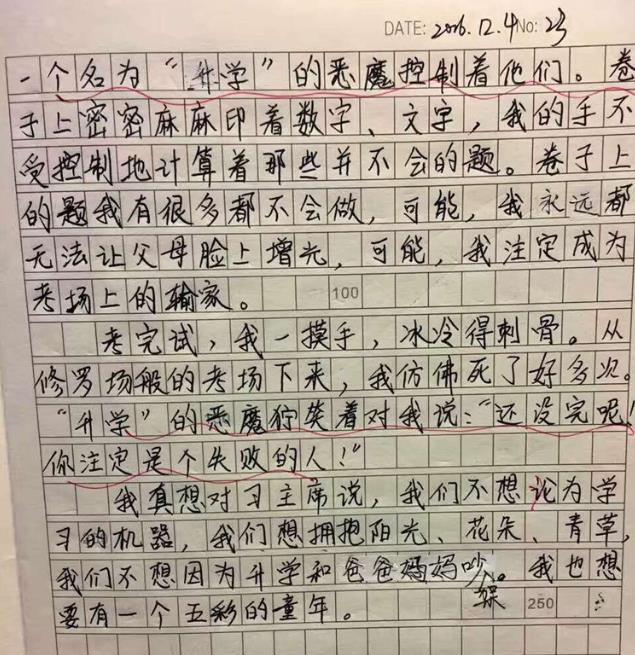 DATE: 2016.12.4 No: 23
一个名为“升学”的恶魔控制着他们。卷
子上密密麻麻印着数字、文字，我的手不
受控制地计算着那些并不会的题。卷子上
的题我有很多都不会做，可能，我永远都
无法让父母脸上增光，可能，我注定成为
考场上的输家。
100
考完试，我一摸手，冰冷得刺骨。从
修罗场般的考场下来，我仿佛死了好多次。
“升学”的恶魔狞笑着对我说：“还没完呢！
你注定是个失败的人！”
我真想对习主席说，我们不想论为学
习的机器，我们想拥抱阳光、花朵、青草，
我们不想因为升学和爸爸妈妈吵。我也想
架
要有一个五彩的童年。
250